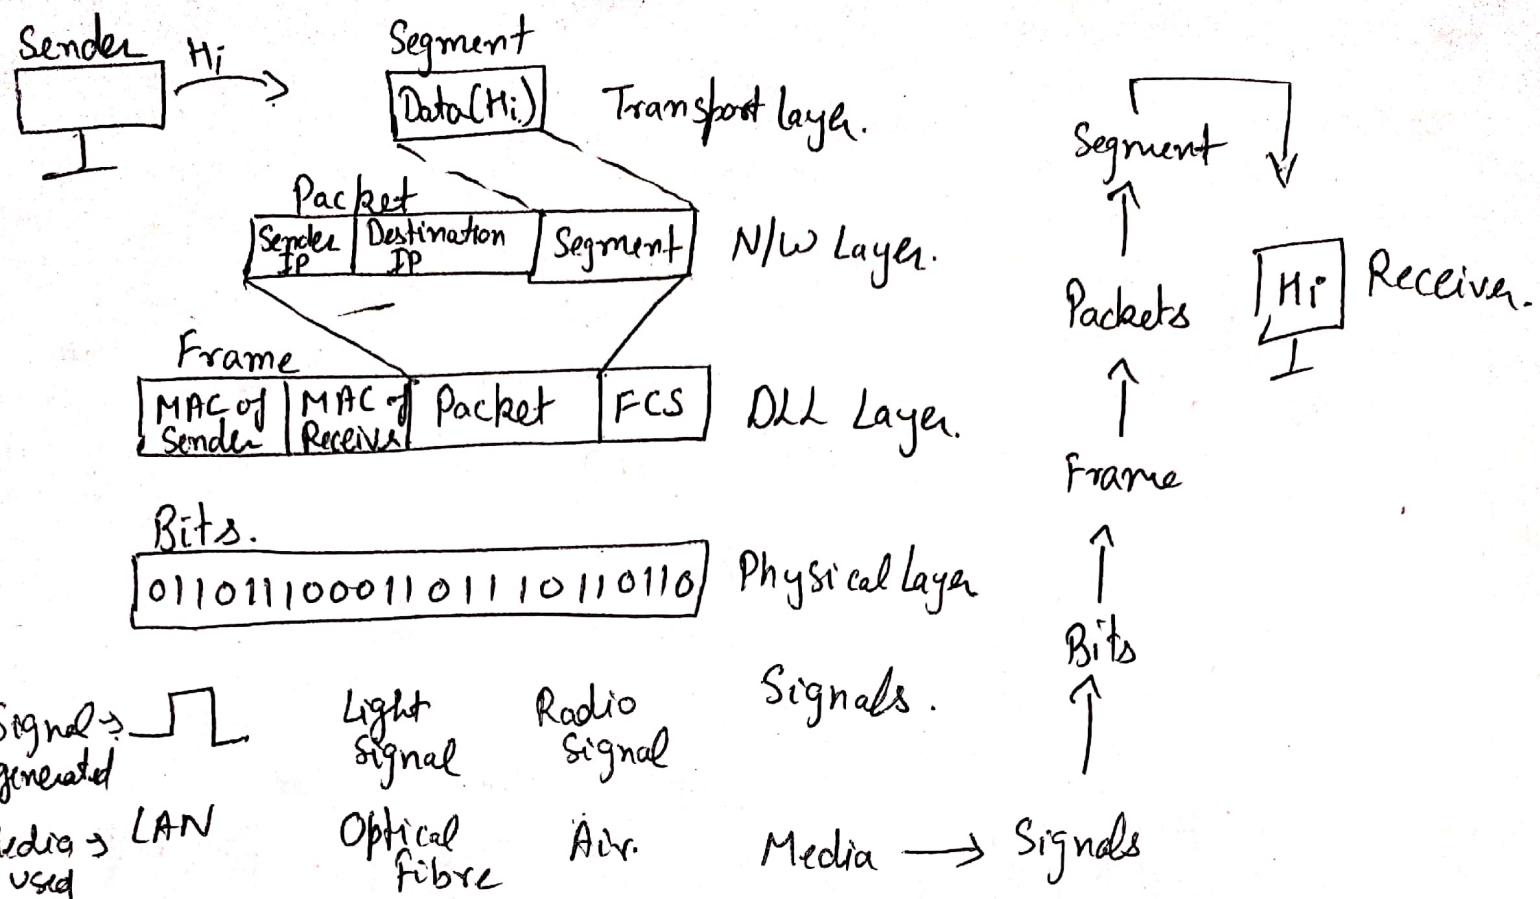 Sender
Hi
Segment
Data(Hi)
Transport Layer.
Packet
Sender IP
Destination IP
Segment
N/W Layer.
Frame
MAC of Sender
MAC of Receiver
Packet
FCS
DLL Layer.
Bits.
01101110001101110110110
Physical Layer
Signal → generated
Light Signal
Radio Signal
Signals.
Media → used
LAN
Optical Fibre
Air.
Media → Signals
Bits
Frame
Packets
Segment
Hi
Receiver.